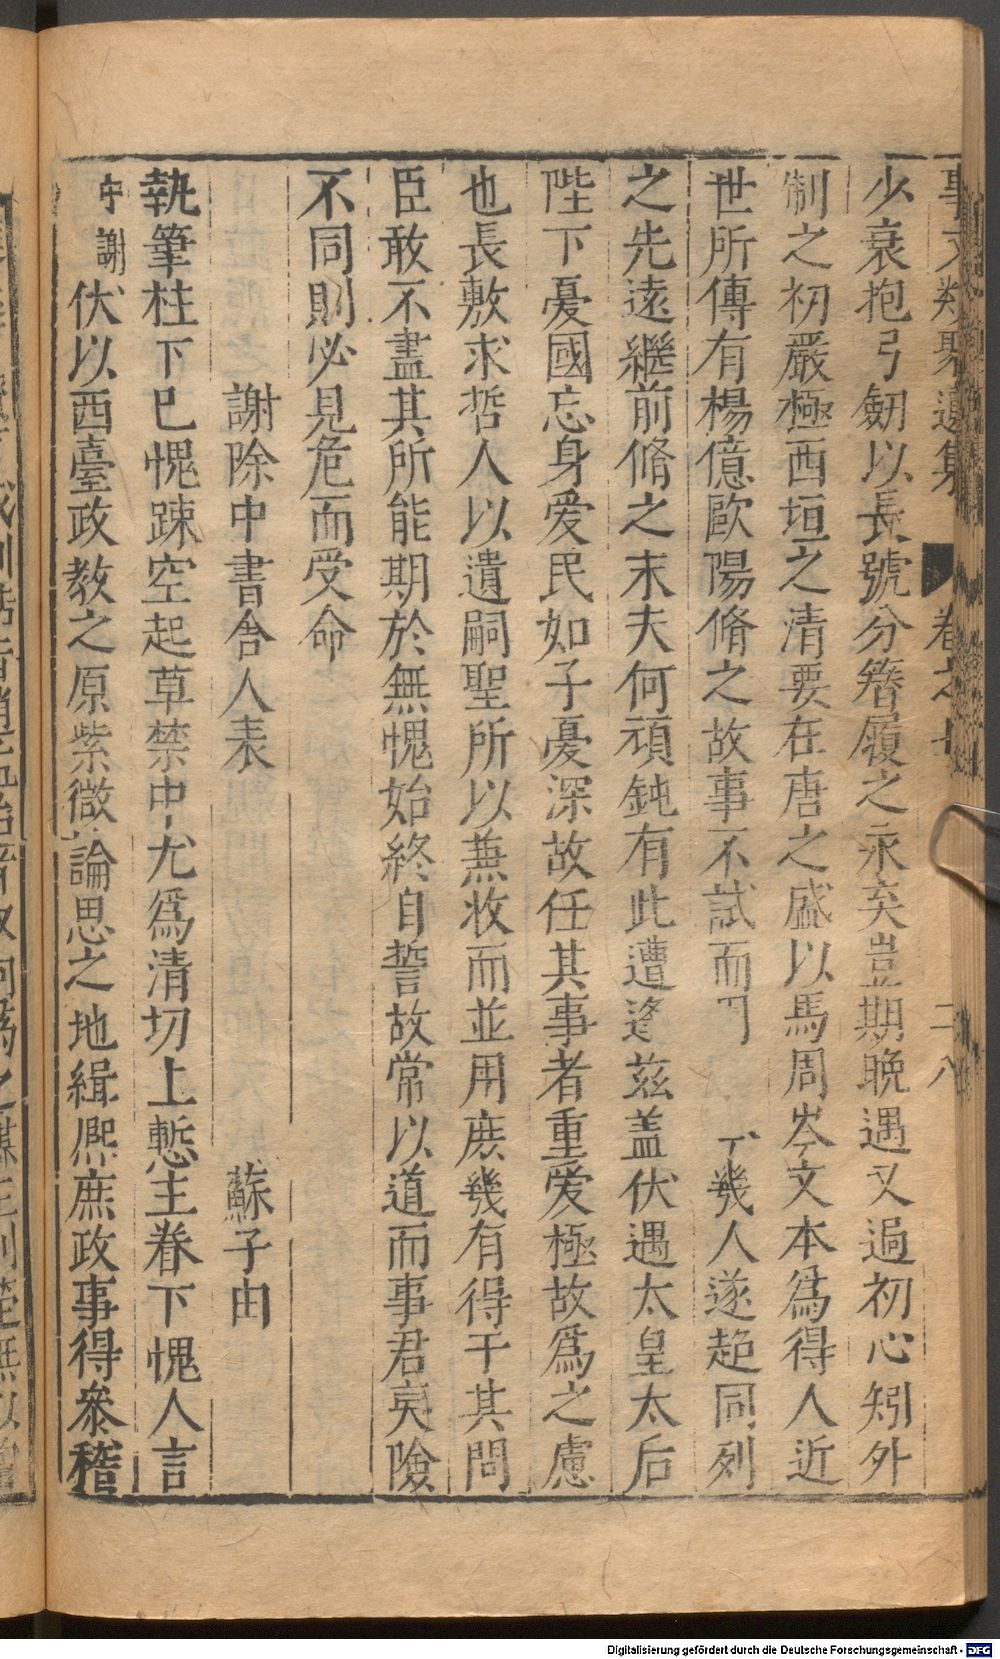 事文類聚遺集 卷之 二八
少衰抱弓劒以長號分簪履之永矣豈期晚遇又過初心矧外
制之初嚴極西垣之清要在唐之盛以馬周岑文本爲得人近
世所傳有楊億歐陽脩之故事不試而 幾人遂超同列
之先遠繼前脩之末夫何頑鈍有此遭逢茲盖伏遇太皇太后
陛下憂國忘身爱民如子憂深故任其事者重爱極故爲之慮
也長敷求哲人以遺嗣聖所以蕪收而並用庶幾有得于其間
臣敢不盡其所能期於無愧始終自誓故常以道而事君夷險
不同則必見危而受命
謝除中書舍人表 蘇子由
執筆柱下已愧踈空起草禁中尤爲清切上慙主眷下愧人言
中謝伏以西臺政教之原紫微論思之地緝熈庶政事得叅稽
Digitalisierung gefördert durch die Deutsche Forschungsgemeinschaft - DFG